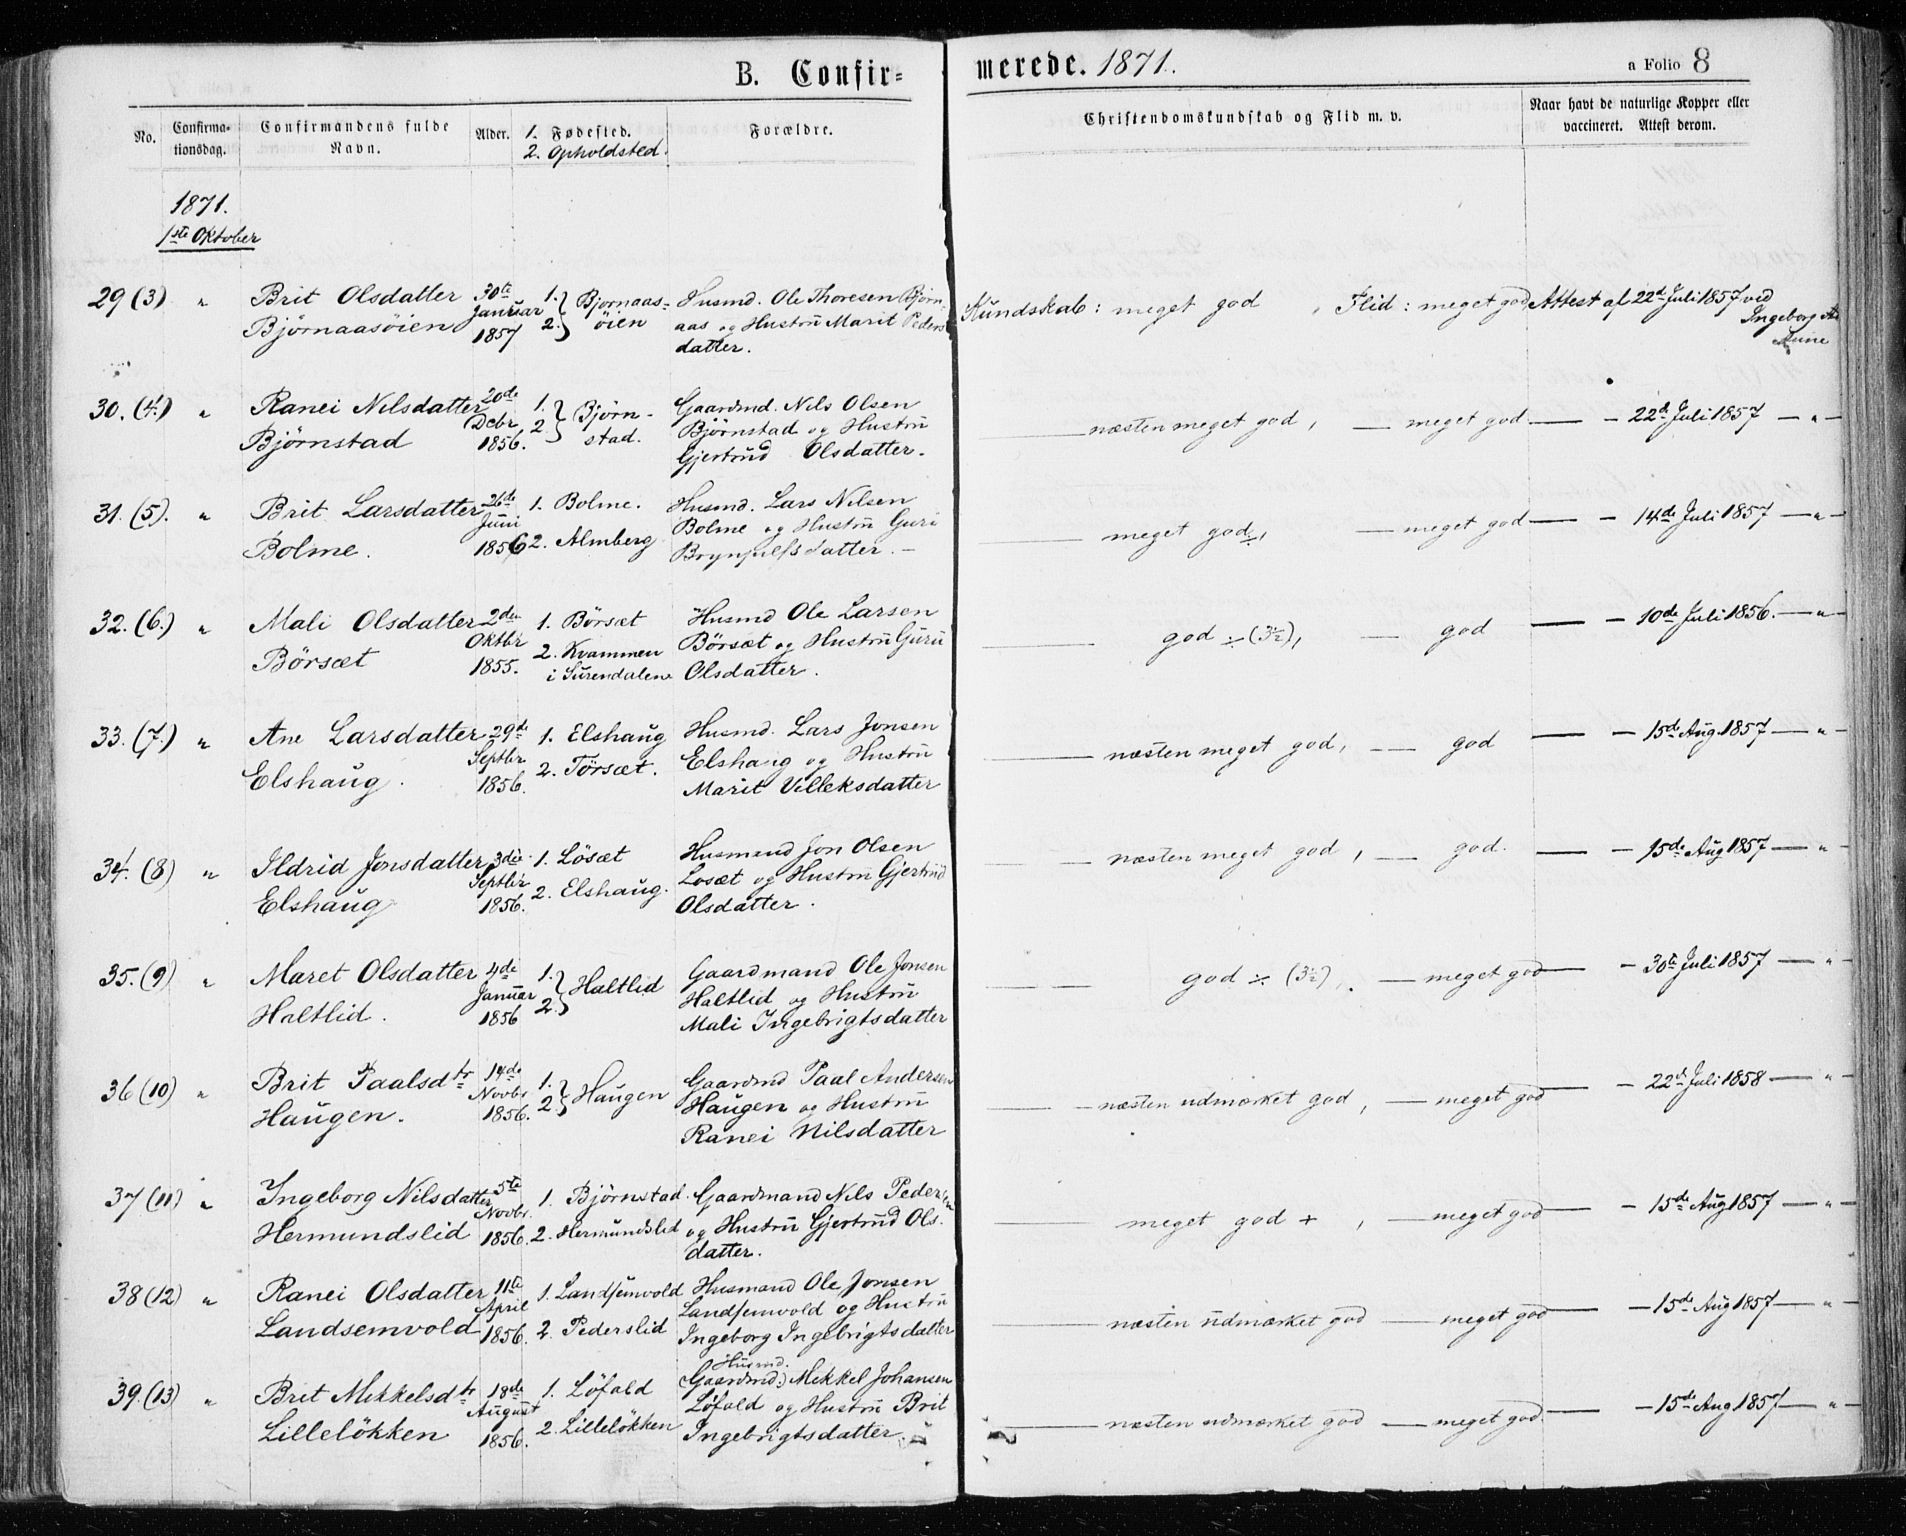 B. Confir=
merede. 1871.
a Folio 8
No.
Confirma-
tionsdag.
Confirmandens fulde
Navn.
Alder.
1. Fødested.
2. Opholdsted.
Forældre.
Christendomskundskab og Flid m. v.
Naar havt de naturlige Kopper eller
vaccineret. Attest derom.
1871.
1ste Oktober
29 (3) " Brit Olsdatter
Bjørnaasöien
30te
Januar
1857
1.
2.} Bjornaas-
öien
Husmd. Ole Thoresen Bjørn
aas og Hustru Marit Peders
datter.
Kundskab: meget god , Flid: meget god, Attest af 22d Juli 1857 ved
Ingeborg
Aune
30. (4.) " Ranei Nilsdatter
Bjørnstad
20de
Decbr
1856.
1.
2.} Bjørn-
stad.
Gaardmd. Nils Olsen
Bjørnstad og Hustru
Gjertrud Olsdatter.
— næsten meget god, — meget god — - 22d Juli 1857 — " —
31. (5). " Brit Larsdatter
Bolme.
26de
Juni
1856
1. Bolme.
2. Almberg
Husmd. Lars Nilsen
Bolme og Hustru Guri
Brynjulfsdatter. —
— meget god ÷, — meget god — - 14de Juli 1857 — " —
32. (6.) " Mali Olsdatter
Börsæt
2den
Oktbr
1855.
1. Börsæt
2. Kvammen
i Surendalen
Husmd Ole Larsen
Börsæt og Hustru Guru
Olsdatter.
— god ÷ (3½), — god — - 10de Juli 1856. — " —
33. (7.) " Ane Larsdatter
Elshaug.
29de
Septbr
1856.
1. Elshaug
2. Törsæt.
Husmd. Lars Jonsen
Elshaug og Hustru
Marit Villeksdatter
— næsten meget god, — god — - 15de Aug 1857 — " —
34. (8) " Ildrid Jonsdatter
Elshaug
3die
Septbr
1856.
1. Lösæt
2. Elshaug.
Husmand Jon Olsen
Losæt og Hustru Gjertrud
Olsdatter.
— næsten meget god, — god. — - 15de Aug 1857 — " —
35. (9) " Maret Olsdatter
Haltlid.
4de
Januar
1856
1.
2.} Haltlid
Gaardmand Ole Jonsen
Haltlid og Hustru
Mali Ingebrigtsdatter
— — god ÷ (3½), — meget god — - 30te Juli 1857 — " —
36 (10) " Brit Paalsdtr
Haugen.
14de
Novbr
1856.
1.
2.} Haugen
Gaardmd Paal Andersen
Haugen og Hustru
Ranei Nilsdatter
— - næsten udmærket god, — meget god — - 22d Juli 1858 — " —
37 (11) " Ingeborg Nilsdatter
Hermundslid
5te
Novbr.
1856.
1. Björnstad.
2. Hermundslid
Gaardmand Nils Pedersen
og Hustru Gjertrud Ols-
datter.
— meget god + , — meget god — - 15de Aug 1857 — " —
38 (12) " Ranei Olsdatter
Landsemvold
11te
April
1856.
1. Landsemvold
2. Pederslid
Husmand Ole Jonsen
Landsemvold og Hustru
Ingeborg Ingebrigtsdatter
— næsten udmærket god — meget god — - 15de Aug 1857 — " —
39. (13) " Brit Mikkelsdtr
Lilleløkken
18de
August
1856.
1. Løfald
2. Lilleløkken
Husmd.
(Gaardmd.) Mikkel Johansen
Løfald og Hustru Brit
Ingebrigtsdatter.
— næsten udmærket god — meget god. — - 15de Aug 1857 — " —